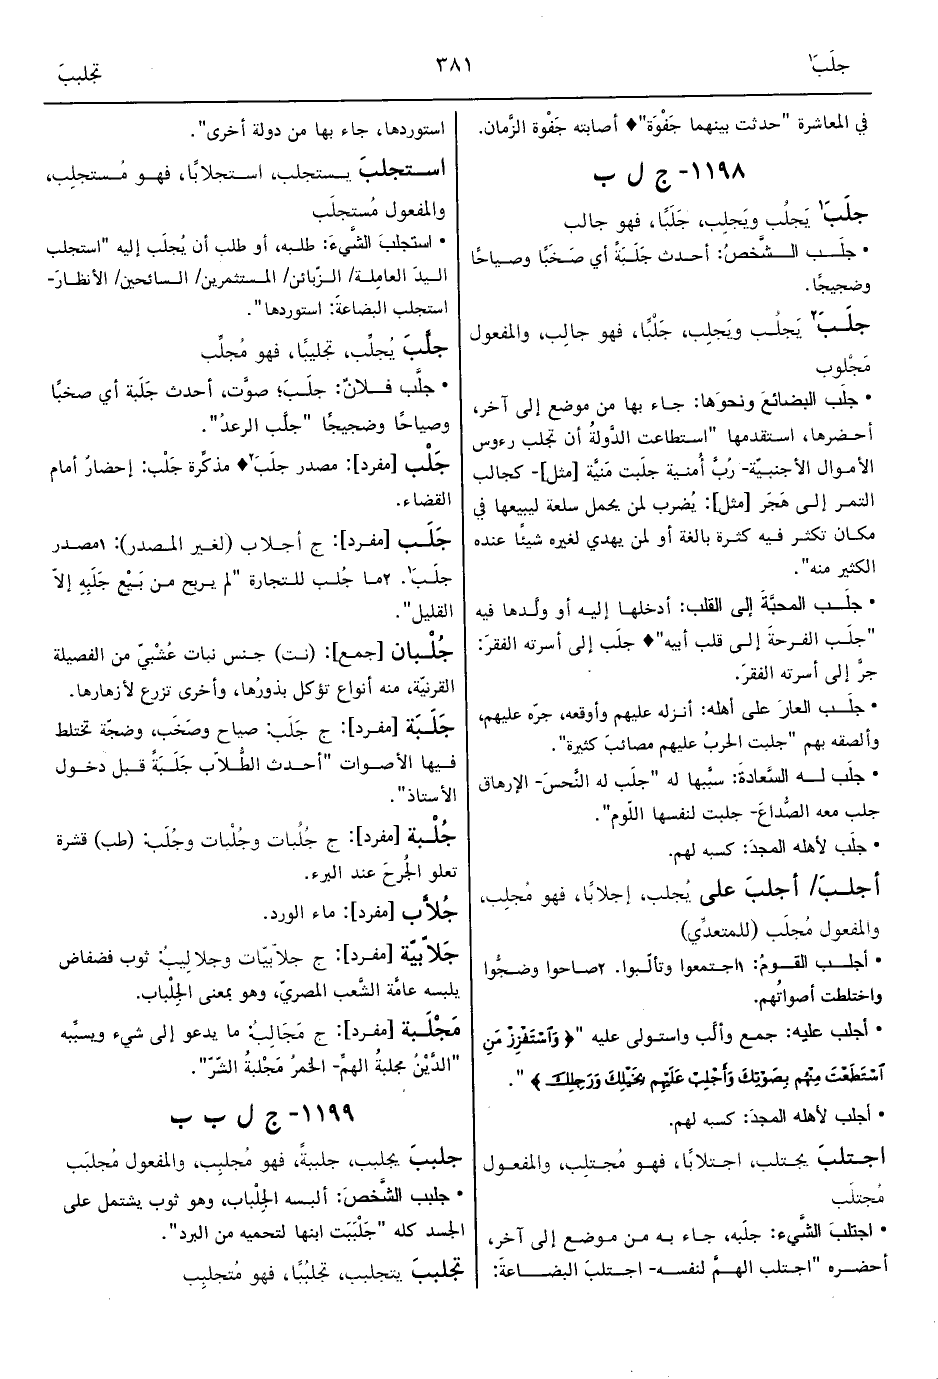 جلَبَ١
٣٨١
تجلببَ
في المعاشرة "حدثت بينهما جَفْوَة"♦ أصابته جَفْوة الزَّمان.
١١٩٨- ج ل ب
جلَبَ١ يَجلُب ويَجلِب، جَلَبًا، فهو جالب
• جلَب الشَّخصُ: أحدث جَلَبَةً أي صَخَبًا وصياحًا
وضجيجًا.
جلَبَ٢ يَجلُب ويَجلِب، جَلْبًا، فهو جالِب، والمفعول
مَجْلوب
• جلَب البضائعَ ونحوَها: جاء بها من موضع إلى آخر،
أحضرها، استقدمها "استطاعت الدَّولةُ أن تجلب رءوس
الأموال الأجنبيّة- رُبَّ أُمنية جلَبت مَنيَّة [مثل]- كجالب
التمر إلى هَجَر [مثل]: يُضرب لمن يحمل سلعة ليبيعها في
مكان تكثر فيه كثرة بالغة أو لمن يهدي لغيره شيئًا عنده
الكثير منه".
• جلَب المحبَّةَ إلى القلب: أدخلها إليه أو ولَّدها فيه
"جلَب الفرحةَ إلى قلب أبيه"♦ جلَب إلى أسرته الفقرَ:
جرَّ إلى أسرته الفقرَ.
• جلَب العارَ على أهله: أنزله عليهم وأوقعه، جرّه عليهم،
وألصقه بهم "جلبت الحربُ عليهم مصائبَ كثيرة".
• جلَب له السَّعادةَ: سبَّبها له "جلَب له النَّحسَ- الإرهاق
جلب معه الصُّداعَ- جلبت لنفسها اللّوم".
• جلَب لأهله المجدَ: كسبه لهم.
أجلبَ/ أجلبَ على يُجلب، إجلابًا، فهو مُجلِب،
والمفعول مُجلَب (للمتعدِّي)
• أجلب القومُ: ١اجتمعوا وتألّبوا. ٢صاحوا وضجُّوا
واختلطت أصواتُهم.
• أجلب عليه: جمع وألّب واستولى عليه "﴿ وَٱسْتَفْزِزْ مَنِ
ٱسْتَطَعْتَ مِنْهُم بِصَوْتِكَ وَأَجْلِبْ عَلَيْهِم بِخَيْلِكَ وَرَجِلِكَ ﴾".
• أجلب لأهله المجدَ: كسبه لهم.
اجتلبَ يجتلب، اجتلابًا، فهو مُجتلِب، والمفعول
مُجتلَب
• اجتلبَ الشَّيءَ: جلبَه، جاء به من موضع إلى آخر،
أحضره "اجتلب الهمَّ لنفسه- اجتلبَ البضاعةَ:
استوردها، جاء بها من دولة أخرى".
استجلبَ يستجلب، استجلابًا، فهو مُستجلِب،
والمفعول مُستجلَب
• استجلبَ الشَّيءَ: طلبه، أو طلب أن يُجلَب إليه "استجلب
اليدَ العاملة/ الزّبائن/ المستثمرين/ السائحين/ الأنظارَ-
استجلب البضاعةَ: استوردها".
جلَّبَ يُجلِّب، تجليبًا، فهو مُجلِّب
• جلَّب فلانٌ: جلَبَ؛ صوَّت، أحدث جَلَبة أي صخبًا
وصياحًا وضجيجًا "جلَّب الرعدُ".
جَلْب [مفرد]: مصدر جلَبَ٢♦ مذكِّرة جَلْب: إحضارُ أمام
القضاء.
جَلَب [مفرد]: ج أجلاب (لغير المصدر): ١مصدر
جلَبَ١. ٢ما جُلب للتجارة "لم يربح من بَيْع جَلَبِه إلاّ
القليل".
جُلْبان [جمع]: (نت) جنس نبات عُشْبيّ من الفصيلة
القرنيّة، منه أنواع تؤكل بذورُها، وأخرى تزرع لأزهارها.
جَلَبَة [مفرد]: ج جَلَب: صياح وصَخَب، وضجّة تختلط
فيها الأصوات "أحدث الطُّلاّب جَلَبَةً قبل دخول
الأستاذ".
جُلْبة [مفرد]: ج جُلُبات وجُلْبات وجُلَب: (طب) قشرة
تعلو الجُرحَ عند البرء.
جُلاَّب [مفرد]: ماء الورد.
جَلاّبيّة [مفرد]: ج جلاّبيّات وجلاليبُ: ثوب فضفاض
يلبسه عامَّة الشَّعب المصريّ، وهو بمعنى الجِلْباب.
مَجْلَبة [مفرد]: ج مَجَالِبُ: ما يدعو إلى شيء ويسبِّبه
"الدَّيْنُ مجلبةُ الهمّ- الخمرُ مَجْلبةُ الشّرّ".
١١٩٩- ج ل ب ب
جلببَ يجلبب، جلببةً، فهو مُجلبِب، والمفعول مُجلبَب
• جلبب الشَّخصَ: ألبسه الجِلْباب، وهو ثوب يشتمل على
الجسد كله "جَلْبَبَت ابنها لتحميه من البرد".
تجلببَ يتجلبب، تجلبُبًا، فهو مُتجلبِب